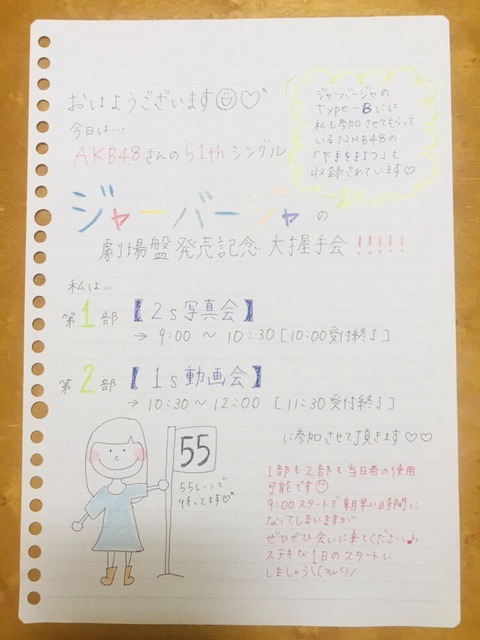 おはようございます☺♡
今日は…
AKB48さんの51thシングル
ジャーバージャの
Type-Bには
私も参加させてもらって
いるNMB48の
も
収録されています♡
ジャーバージャの
劇場盤発売記念 大握手会!!!!!
私は…
第1部 【2s写真会】
→ 9:00 〜 10:30 [10:00受付終了]
第2部 【1s動画会】
→ 10:30 〜 12:00 [11:30受付終了]
に参加させて頂きます♡♡
55
55レーンで
待ってます♡
1部も2部も当日券の使用
可能です☺
9:00スタートで朝早い時間に
なってしまいますが
ぜひぜひ会いに来てください♪
ステキな1日のスタートに
しましょう